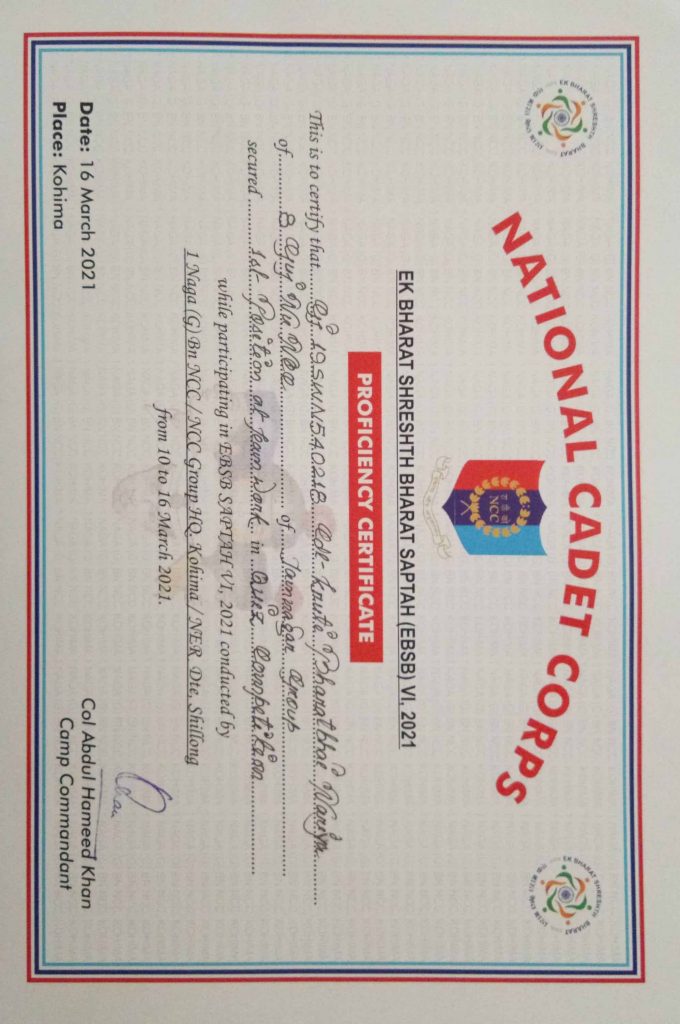 EK BHARAT SHRESHTH BHARAT
EK BHARAT SHRESHTH BHARAT
NATIONAL CADET CORPS
NCC
EK BHARAT SHRESHTH BHARAT SAPTAH (EBSB) VI, 2021
PROFICIENCY CERTIFICATE
This is to certify that Bharatbhai
of 8 Guj Nu. NCC of Jamnagar Group
secured 1st Position at team work in Quiz Competition
while participating in EBSB SAPTAH VI, 2021 conducted by
1 Naga (G) Bn NCC / NCC Group HQ, Kohima / NER Dte, Shillong
from 10 to 16 March 2021.
Date: 16 March 2021
Place: Kohima
Col Abdul Hameed Khan
Camp Commandant